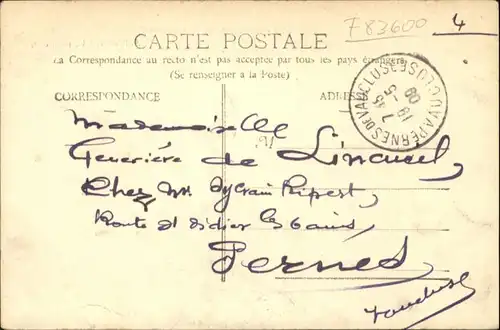 F83600
4
CARTE POSTALE
La Correspondance au recto n'est pas acceptée par tous les pays étrangers
(Se renseigner à la Poste)
CORRESPONDANCE
ADRESSE
PERNES VAUCLUSE
7 45
18 - 5
09
Mademoiselle
Geneviève de
Chez Mr Sylvain Ripert,
Route St Didier les bains,
Pernes,
Vaucluse